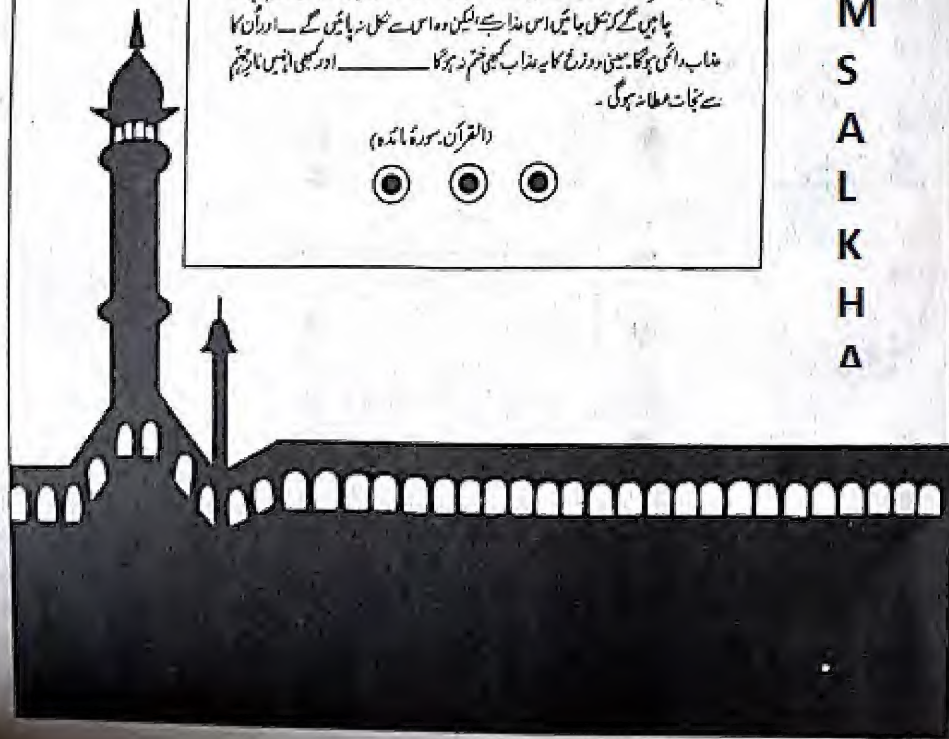 چاہیں گے کہ نکل جائیں اس عذاب سے لیکن وہ اس سے نکل نہ پائیں گے ــ اور اُن کا
عذاب دائمی ہوگا۔ یعنی دوزخ کا یہ عذاب کبھی ختم نہ ہوگا ــــــــــ اور کبھی انہیں نارِ جہنم
سے نجات عطا نہ ہوگی ۔
(القرآن۔ سورۂ مائدہ)
M
S
A
L
K
H
A